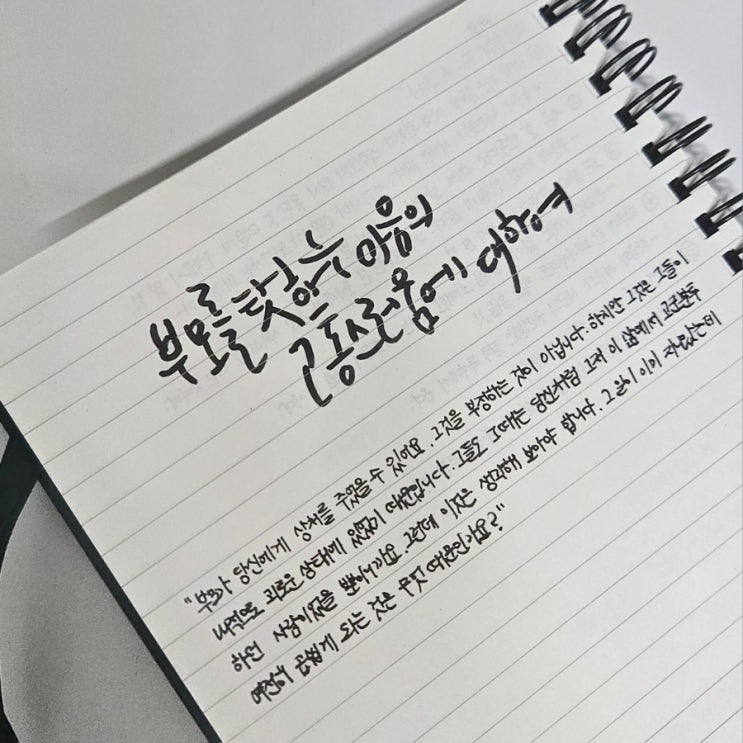 부모를 탓하는 마음의
고통스러움에 대하여
"부모가 당신에게 상처를 주었을 수 있어요. 그것을 부정하는 것이 아닙니다. 하지만 그것은 그들이
내적으로 괴로운 상태에 있었기 때문입니다. 그들도 그때는 당신처럼 그저 이 삶에서 고군분투
하던 사람이었을 뿐이니까요. 그런데 이것은 생각해 보아야 합니다. 그 일이 이미 지났는데
여전히 곱씹게 되는 것은 무엇 때문인가요?"